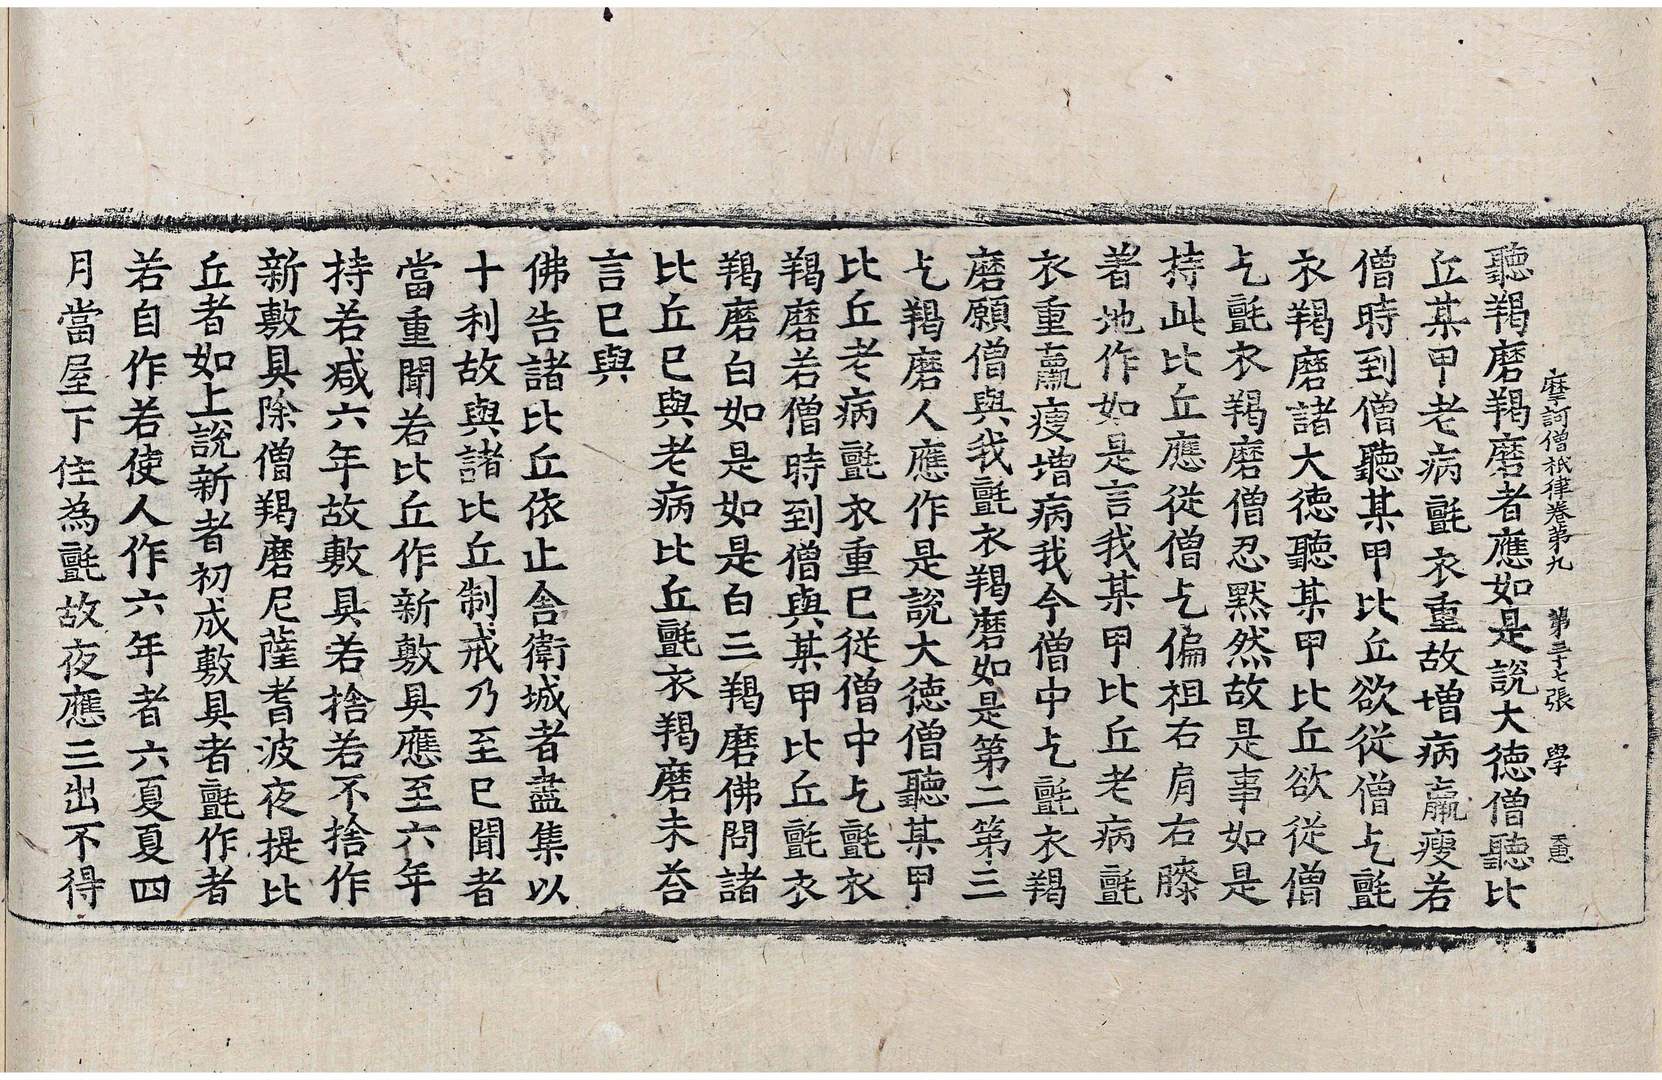 摩訶僧祇律卷第九 第三十七張 學
聽羯磨羯磨者應如是說大德僧聽比
丘某甲老病氈衣重故增病羸瘦若
僧時到僧聽某甲比丘欲從僧乞氈
衣羯磨諸大德聽某甲比丘欲從僧
乞氈衣羯磨僧忍黙然故是事如是
持此比丘應從僧乞偏袒右肩右膝
著地作如是言我某甲比丘老病氈
衣重羸瘦增病我今僧中乞氈衣羯
磨願僧與我氈衣羯磨如是第二第三
乞羯磨人應作是說大德僧聽某甲
比丘老病氈衣重已從僧中乞氈衣
羯磨若僧時到僧與某甲比丘氈衣
羯磨白如是如是白三羯磨佛問諸
比丘已與老病比丘氈衣羯磨未荅
言已與
佛告諸比丘依止舍衛城者盡集以
十利故與諸比丘制戒乃至已聞者
當重聞若比丘作新敷具應至六年
持若減六年故敷具若捨若不捨作
新敷具除僧羯磨尼薩耆波夜提比
丘者如上說新者初成敷具者氈作者
若自作若使人作六年者六夏夏四
月當屋下住為氈故夜應三出不得